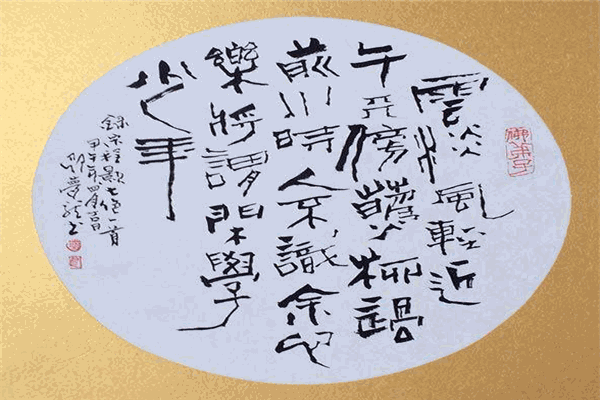 雲淡風輕近
午天傍隨柳過
前川時人不識余心
樂將謂閑學
少年
錄宋程顥七絕一首
甲午年四月吉日